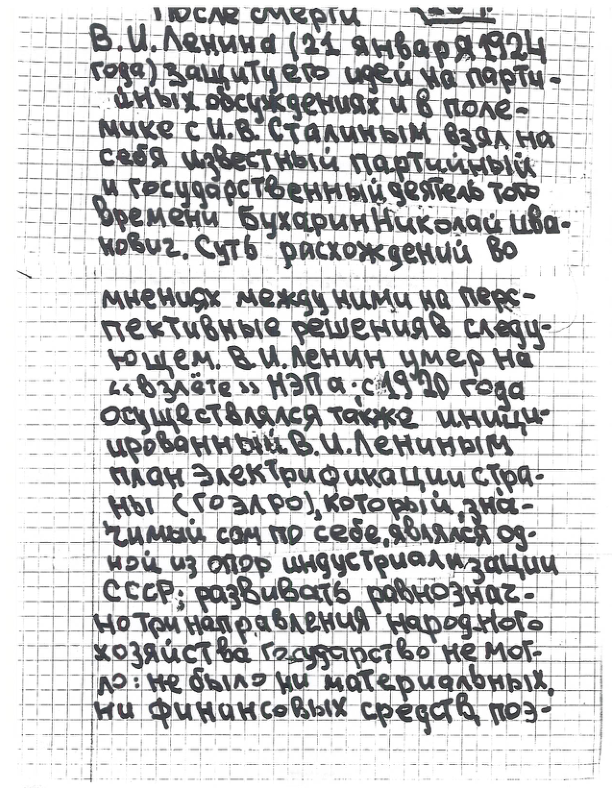 После смерти
В.И.Ленина (21 января 1924
года) защиту его идей на парти-
йных обсуждениях и в поле-
мике с И.В. Сталиным взял на
себя известный партийный
и государственный деятель того
времени Бухарин Николай Ива-
нович. Суть расхождений во
мнениях между ними на перс-
пективные решения в следу-
ющем. В.И.Ленин умер на
«взлёте» НЭПа; с 1920 года
осуществлялся также иници-
ированный В.И.Лениным
план электрификации стра-
ны (ГОЭЛРО), который, зна-
чимый сам по себе, являлся од-
ной из опор индустриализации
СССР; развивать равнознач-
но три направления народного
хозяйства государство не мог-
ло: не было ни материальных,
ни финансовых средств, поэ-